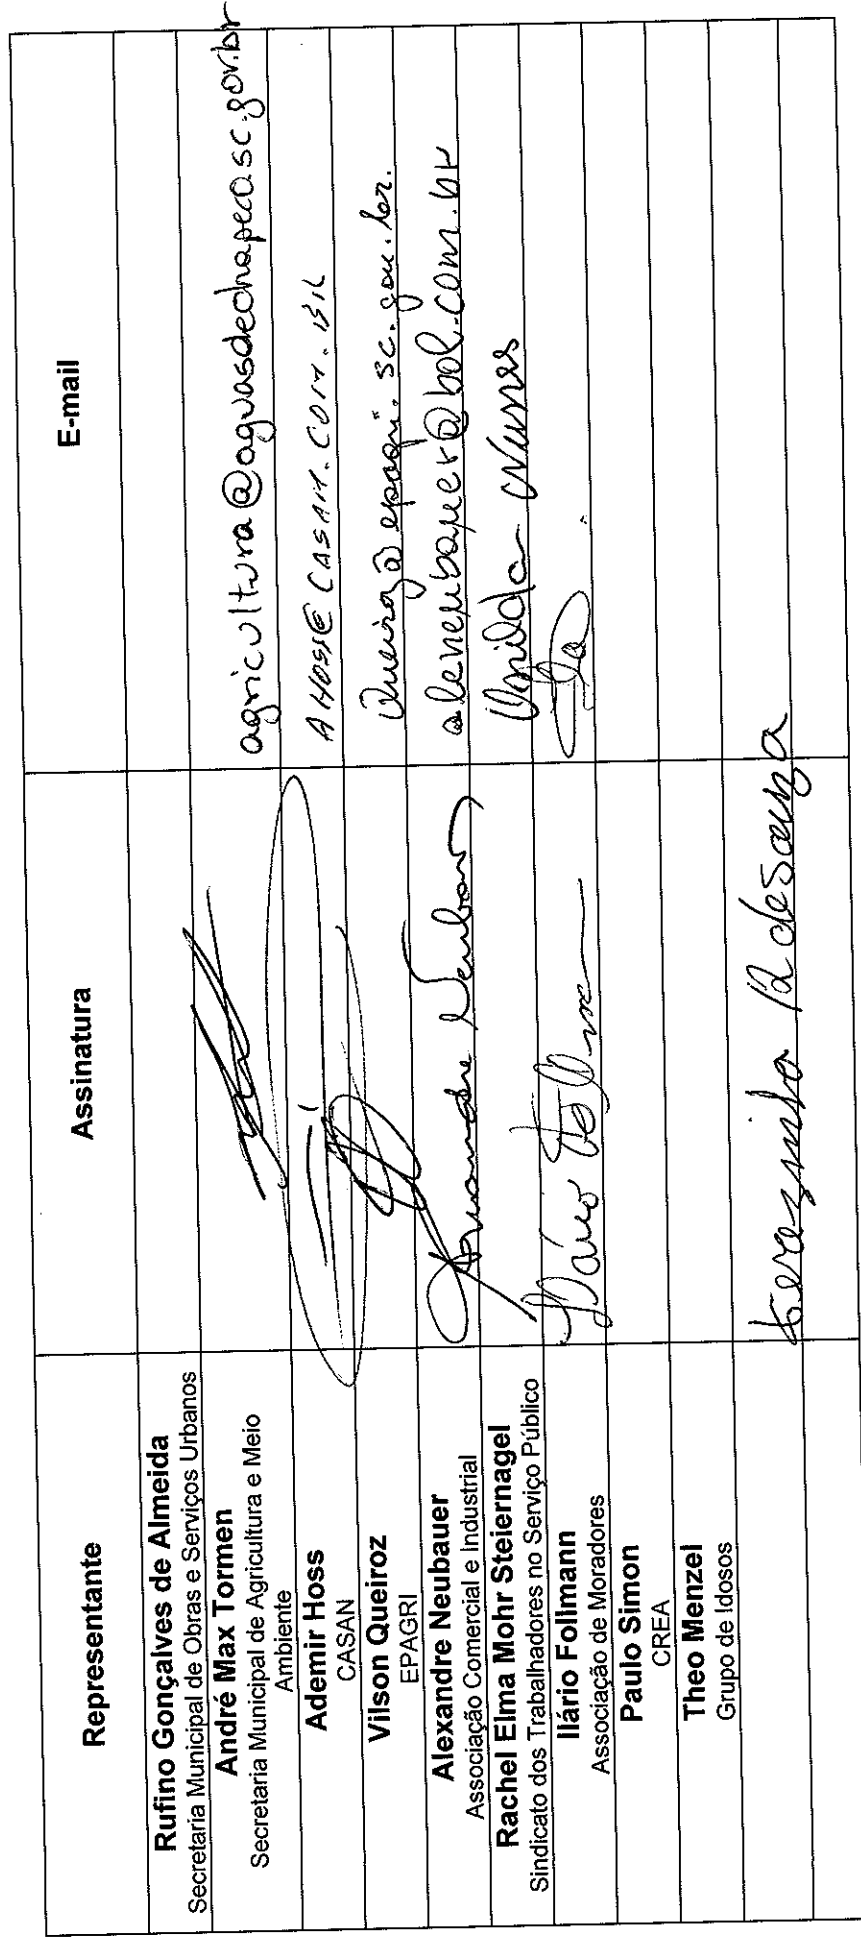 Representante Assinatura E-mail
Rufino Gonçalves de Almeida
Secretaria Municipal de Obras e Serviços Urbanos
André Max Tormen
Secretaria Municipal de Agricultura e Meio
Ambiente
agricultura@aguasdechapeco.sc.gov.br
Ademir Hoss
CASAN
AHOSS@CASAN.COM.BR
Vilson Queiroz
EPAGRI
Queiroz@epagri.sc.gov.br.
Alexandre Neubauer
Associação Comercial e Industrial
aleneubauer@bol.com.br
Rachel Elma Mohr Steiernagel
Sindicato dos Trabalhadores no Serviço Público
Nunes
Ilário Follmann
Associação de Moradores
Ilário Follmann
Paulo Simon
CREA
Theo Menzel
Grupo de Idosos
Terezinha R de Souza